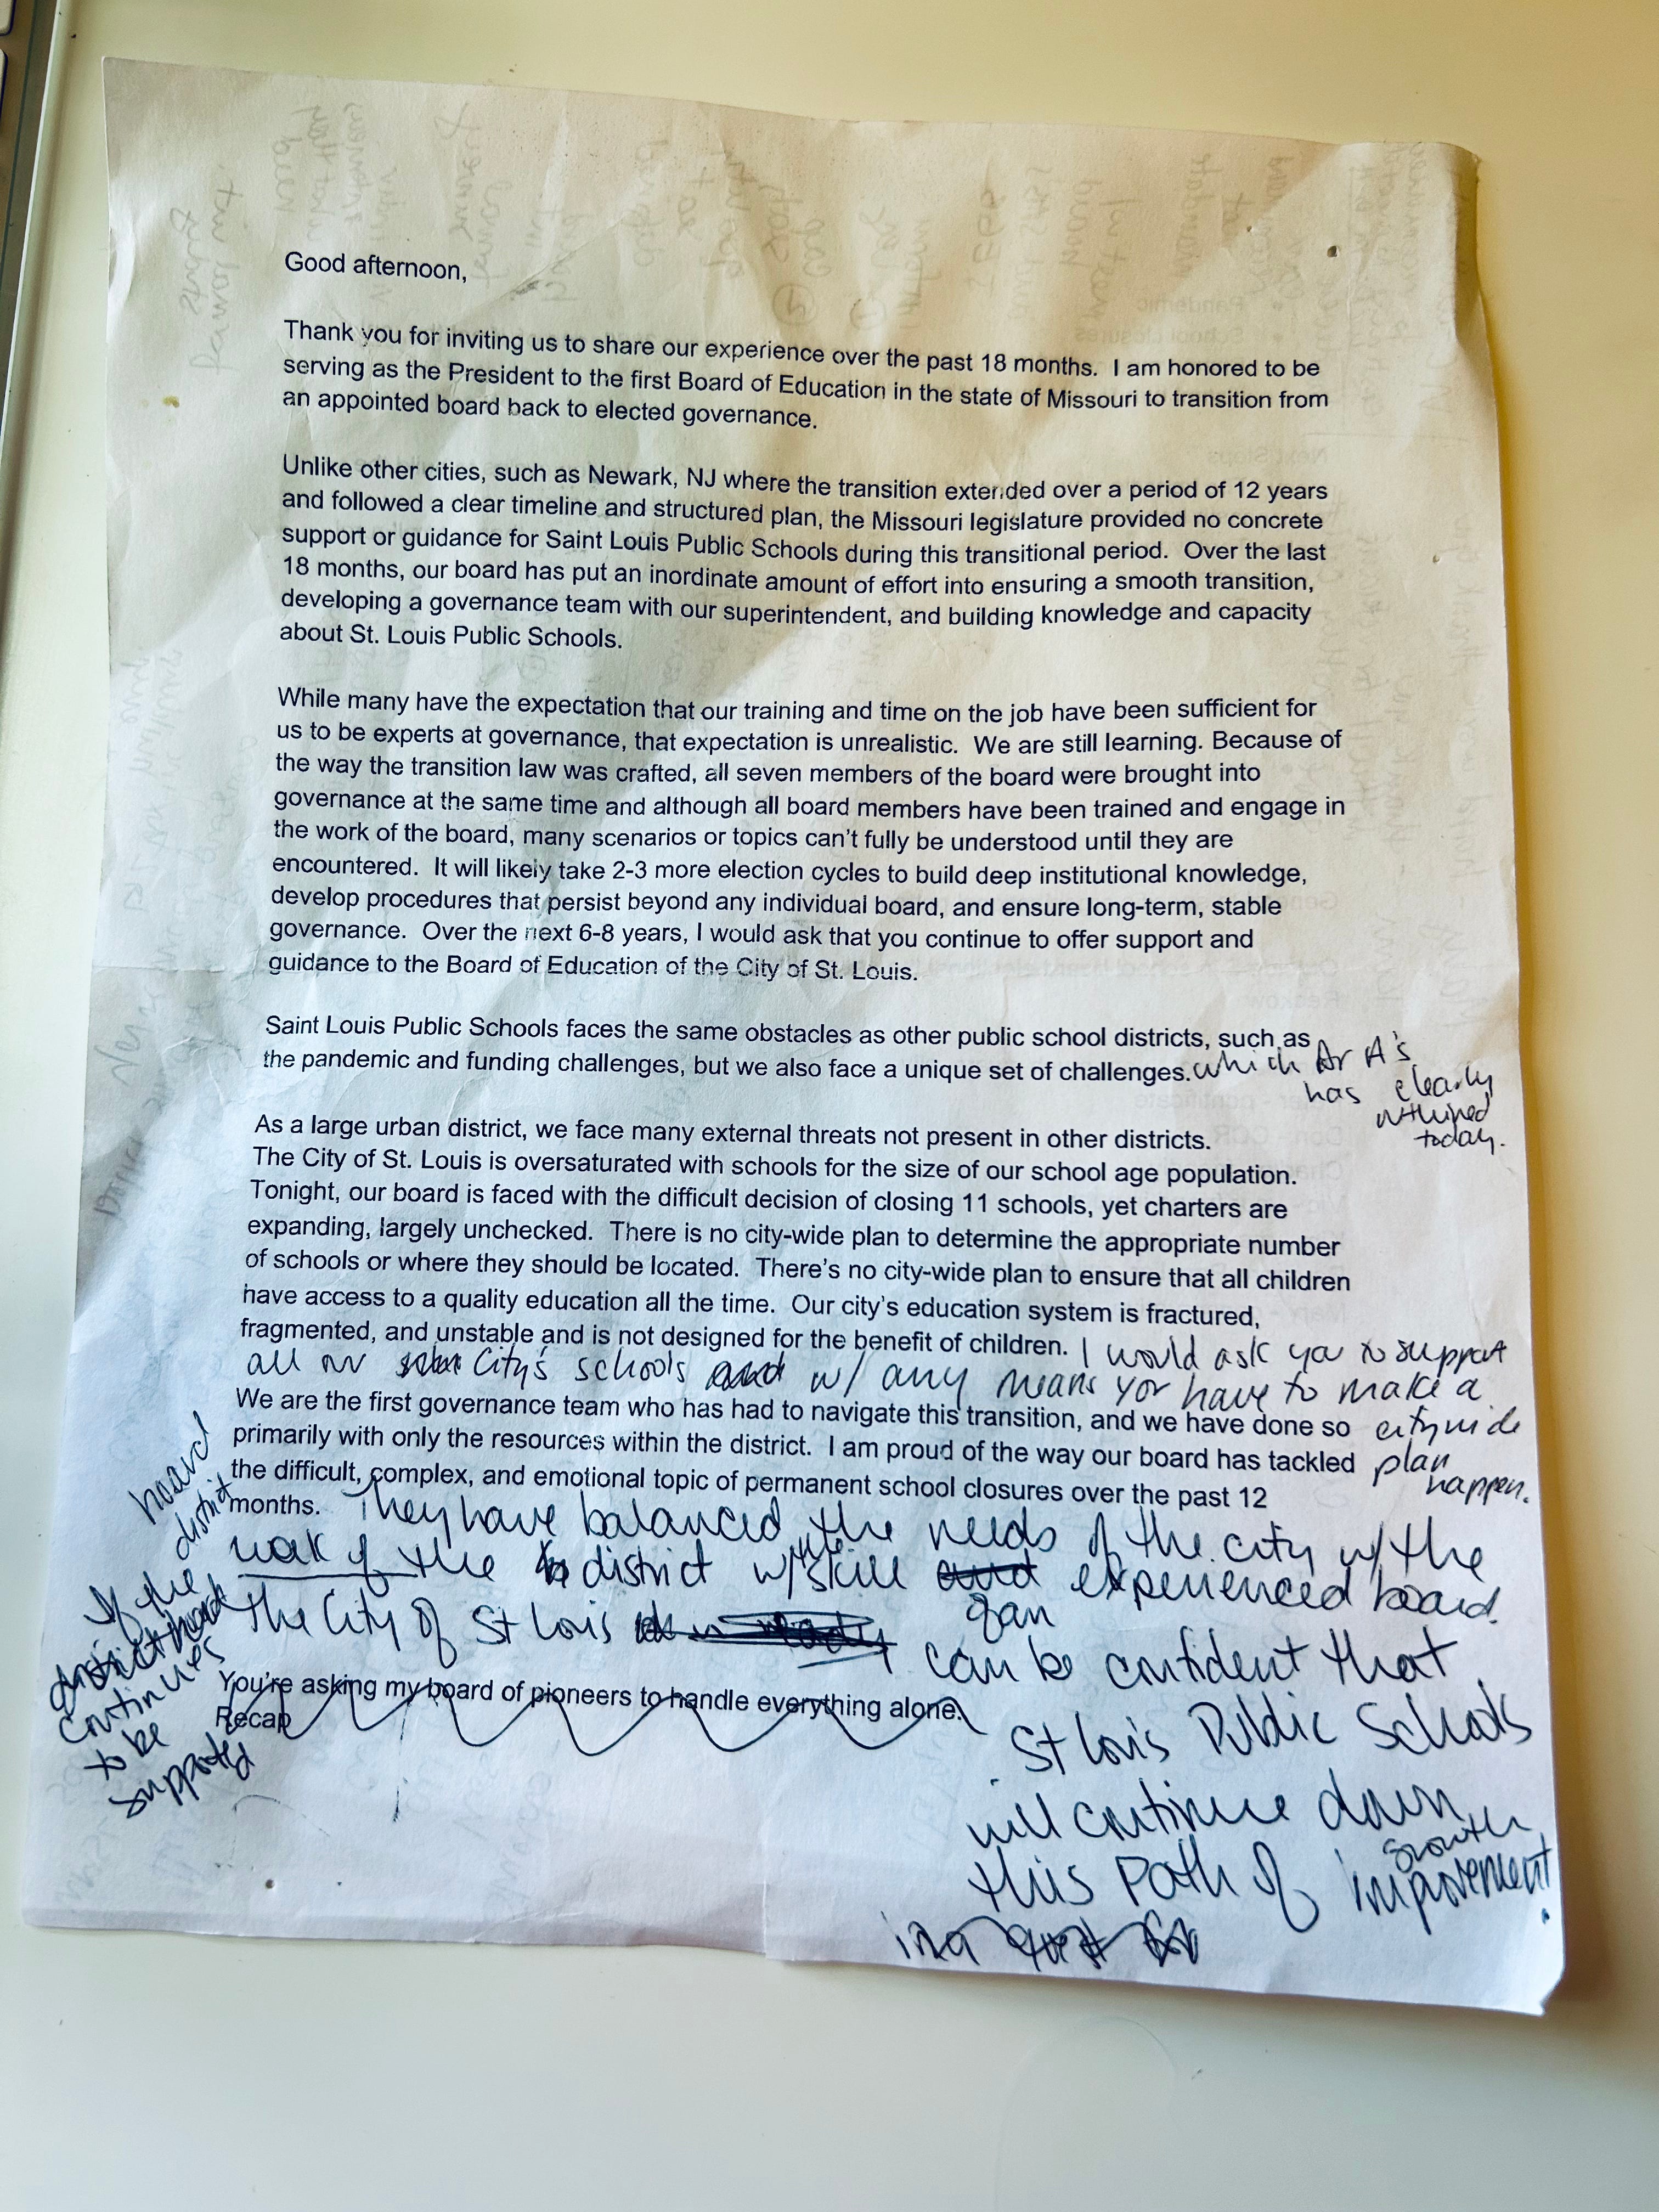 Good afternoon,
Thank you for inviting us to share our experience over the past 18 months. I am honored to be
serving as the President to the first Board of Education in the state of Missouri to transition from
an appointed board back to elected governance.
Unlike other cities, such as Newark, NJ where the transition extended over a period of 12 years
and followed a clear timeline and structured plan, the Missouri legislature provided no concrete
support or guidance for Saint Louis Public Schools during this transitional period. Over the last
18 months, our board has put an inordinate amount of effort into ensuring a smooth transition,
developing a governance team with our superintendent, and building knowledge and capacity
about St. Louis Public Schools.
While many have the expectation that our training and time on the job have been sufficient for
us to be experts at governance, that expectation is unrealistic. We are still learning. Because of
the way the transition law was crafted, all seven members of the board were brought into
governance at the same time and although all board members have been trained and engage in
the work of the board, many scenarios or topics can't fully be understood until they are
encountered. It will likely take 2-3 more election cycles to build deep institutional knowledge,
develop procedures that persist beyond any individual board, and ensure long-term, stable
governance. Over the next 6-8 years, I would ask that you continue to offer support and
guidance to the Board of Education of the City of St. Louis.
Saint Louis Public Schools faces the same obstacles as other public school districts, such as
the pandemic and funding challenges, but we also face a unique set of challenges. which Dr A's
has clearly
outlined
today.
As a large urban district, we face many external threats not present in other districts.
The City of St. Louis is oversaturated with schools for the size of our school age population.
Tonight, our board is faced with the difficult decision of closing 11 schools, yet charters are
expanding, largely unchecked. There is no city-wide plan to determine the appropriate number
of schools or where they should be located. There's no city-wide plan to ensure that all children
have access to a quality education all the time. Our city's education system is fractured,
fragmented, and unstable and is not designed for the benefit of children. I would ask you to support
all our City's schools w/ any means you have to make a
citywide
plan
happen.
We are the first governance team who has had to navigate this transition, and we have done so
primarily with only the resources within the district. I am proud of the way our board has tackled
the difficult, complex, and emotional topic of permanent school closures over the past 12
months. They have balanced the needs of the city w/ the
of the district w/ skill and experienced board.
If the
board
district
continues
to be
supported
the City of St Louis
can be confident that
St Louis Public Schools
will continue down
this path of growth
improvement.
in a quest for
You're asking my board of pioneers to handle everything alone.
Recap